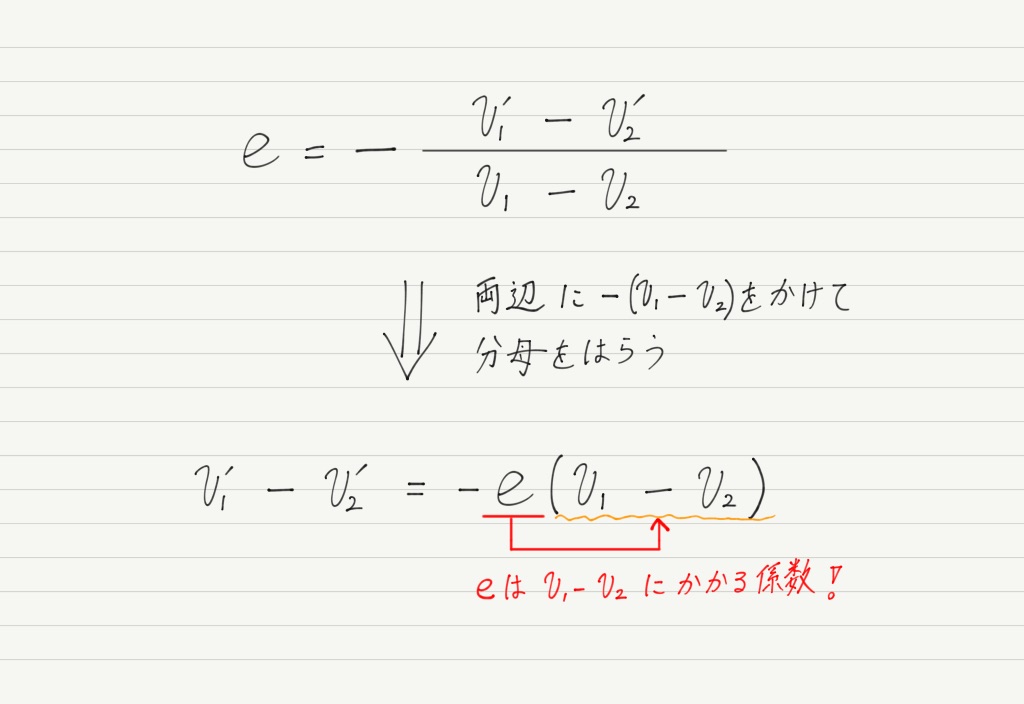 e = - (v₁′ - v₂′) / (v₁ - v₂)
両辺に-(v₁-v₂)をかけて
分母をはらう
v₁′ - v₂′ = -e(v₁ - v₂)
eはv₁-v₂にかかる係数!